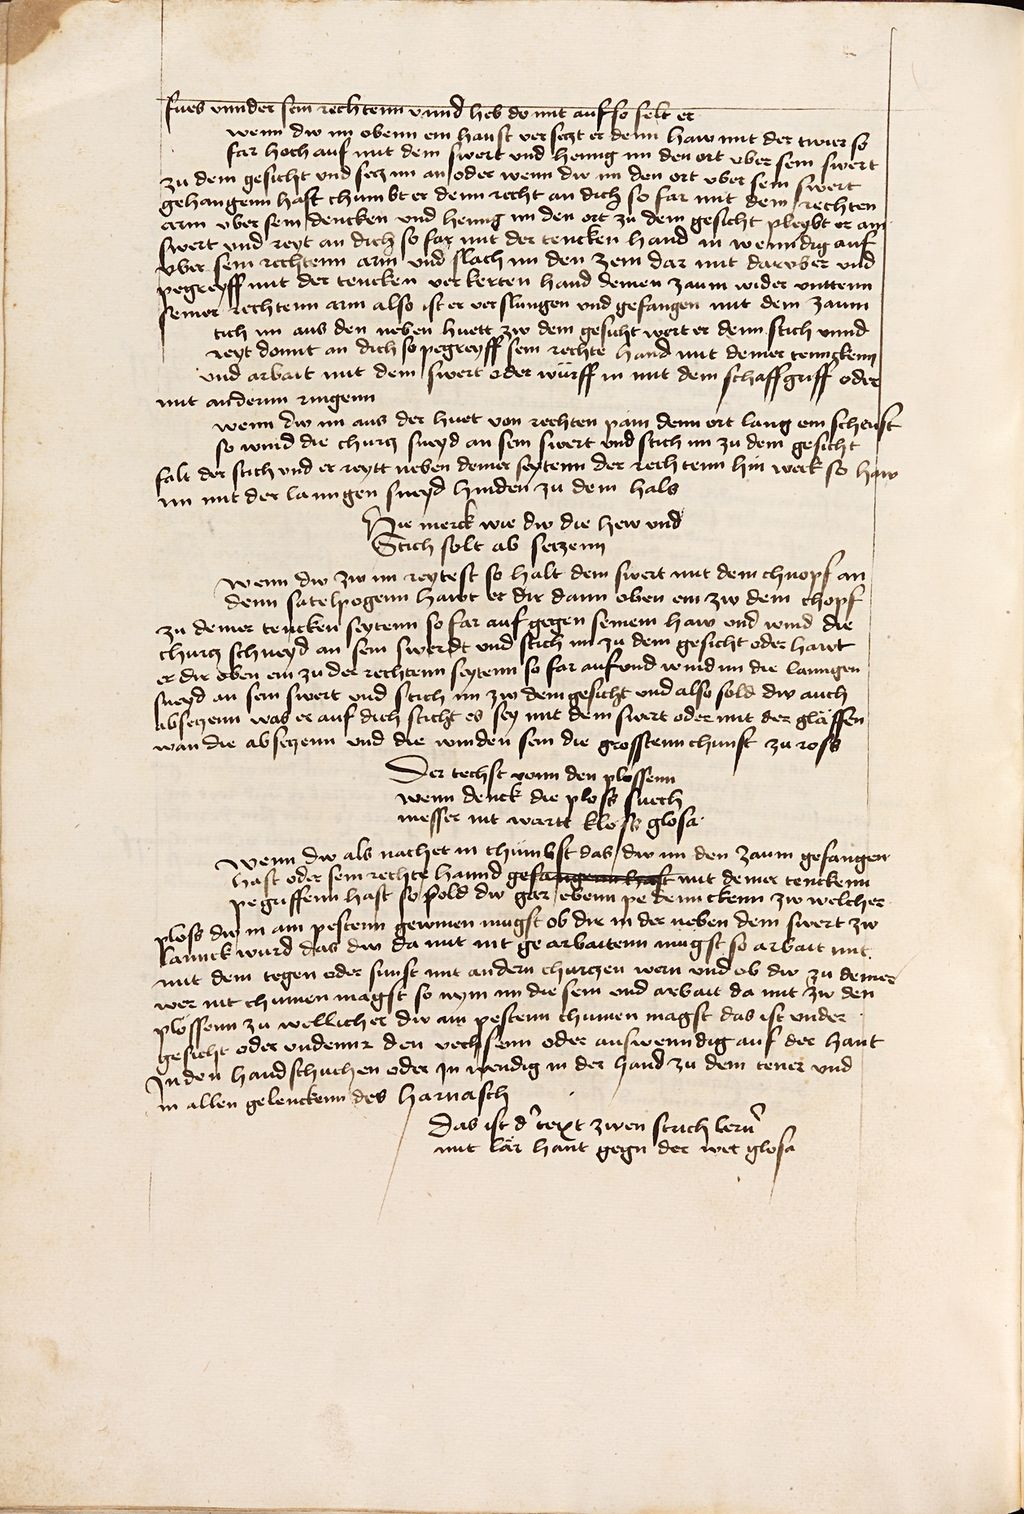 fues vnnder sein rechtenn vnnd heb do mit auf so felt er
wenn dw im obenn ein haust verseczt er denn haw mit der twier so
far hoch auf mit dem swert vnd heng im den ort vber sein swert
zu dem gesicht vnd secz im an oder wenn dw im den ort vber sein swert
gehangenn hast chumbt er denn recht an dich so far mit dem rechten
arm vber sein dencken vnd heng im den ort zu dem gesicht pleybt er am
swert vnd reyt an dich so far mit der tencken hand in wenndig auf
vber sein rechtenn arm vnd slach im den zem dar mit darvber vnd
pegreyff mit der tencken verkerten hand deinen zaum wider vnttenn
seiner rechtenn arm also ist er verslungen vnd gefangen mit dem zaum
tich im aus den neben huett zw dem gesicht wert er denn stich vnnd
reyt domit an dich so pegreyff sein rechte hand mit deiner tenncken
vnd arbait mit dem swert oder würff in mit dem schaffgriff oder
mit anderm ringenn
wenn dw im aus der huet von rechten pain denn ort lang ein scheust
so wind die churcz sneyd an sein swert vnd stich im zu dem gesicht
falt der stich vnd er reytt neben deiner seytenn der rechtenn hin weck so haw
im mit der lanngen sneyd hinden zu dem hals
Hie merck wie dw die hew vnd
Stich solt ab seczenn
Wenn dw zw im reytest so halt dein swert mit dem chnopf an
denn satelpogenn hawt er dir dann oben ein zw dem chopf
zu deiner tencken seytenn so far auf gegen seinem haw vnd wind die
churcz schneyd an sein swerdt vnd stich im zu dem gesicht oder hawt
er dir oben ein zu der rechtenn seytenn so far auf vnd wind im die lanngen
sneyd an sein swert vnd stich im zw dem gesicht vnd also sold dw auch
abseczenn was er auf dich sticht es sey mit dem swert oder mit der gläffen
wan die abseczenn vnd die winden sein die grosstenn chunst zu ross
Der techst vonn den plössenn
wenn denck die ploss suech
messer nit wartt kloss glosa
Wenn dw als nachet in chümbst das dw im den zaum gefangen
hast oder sein rechte hannd gefangenn hast mit deiner tenckenn
pegriffenn hast so sold dw gar ebenn pedennckenn zw welcher
ploss dw in am pestenn gewinen mugst ob dir in der neben dem swert zw
lannck wurd das dw da mit nit gearbaitenn mugst so arbait mit
mit dem tegen oder sunst mit andern churczen wern vnd ob dw zu deiner
wer nit chumen magst so nym im die sein vnd arbait da mit zw den
plössenn zu wellicher dw am pestenn chumen magst das ist vnder
gesicht oder vndenn den vechsenn oder auswenndig auf der hant
In den handschuchen oder In wendig in der hand zu dem tener vnd
in allen gelenckenn des harnasch
Das ist d' text zwen strich lern
mit lär hant gegn der wer glosa